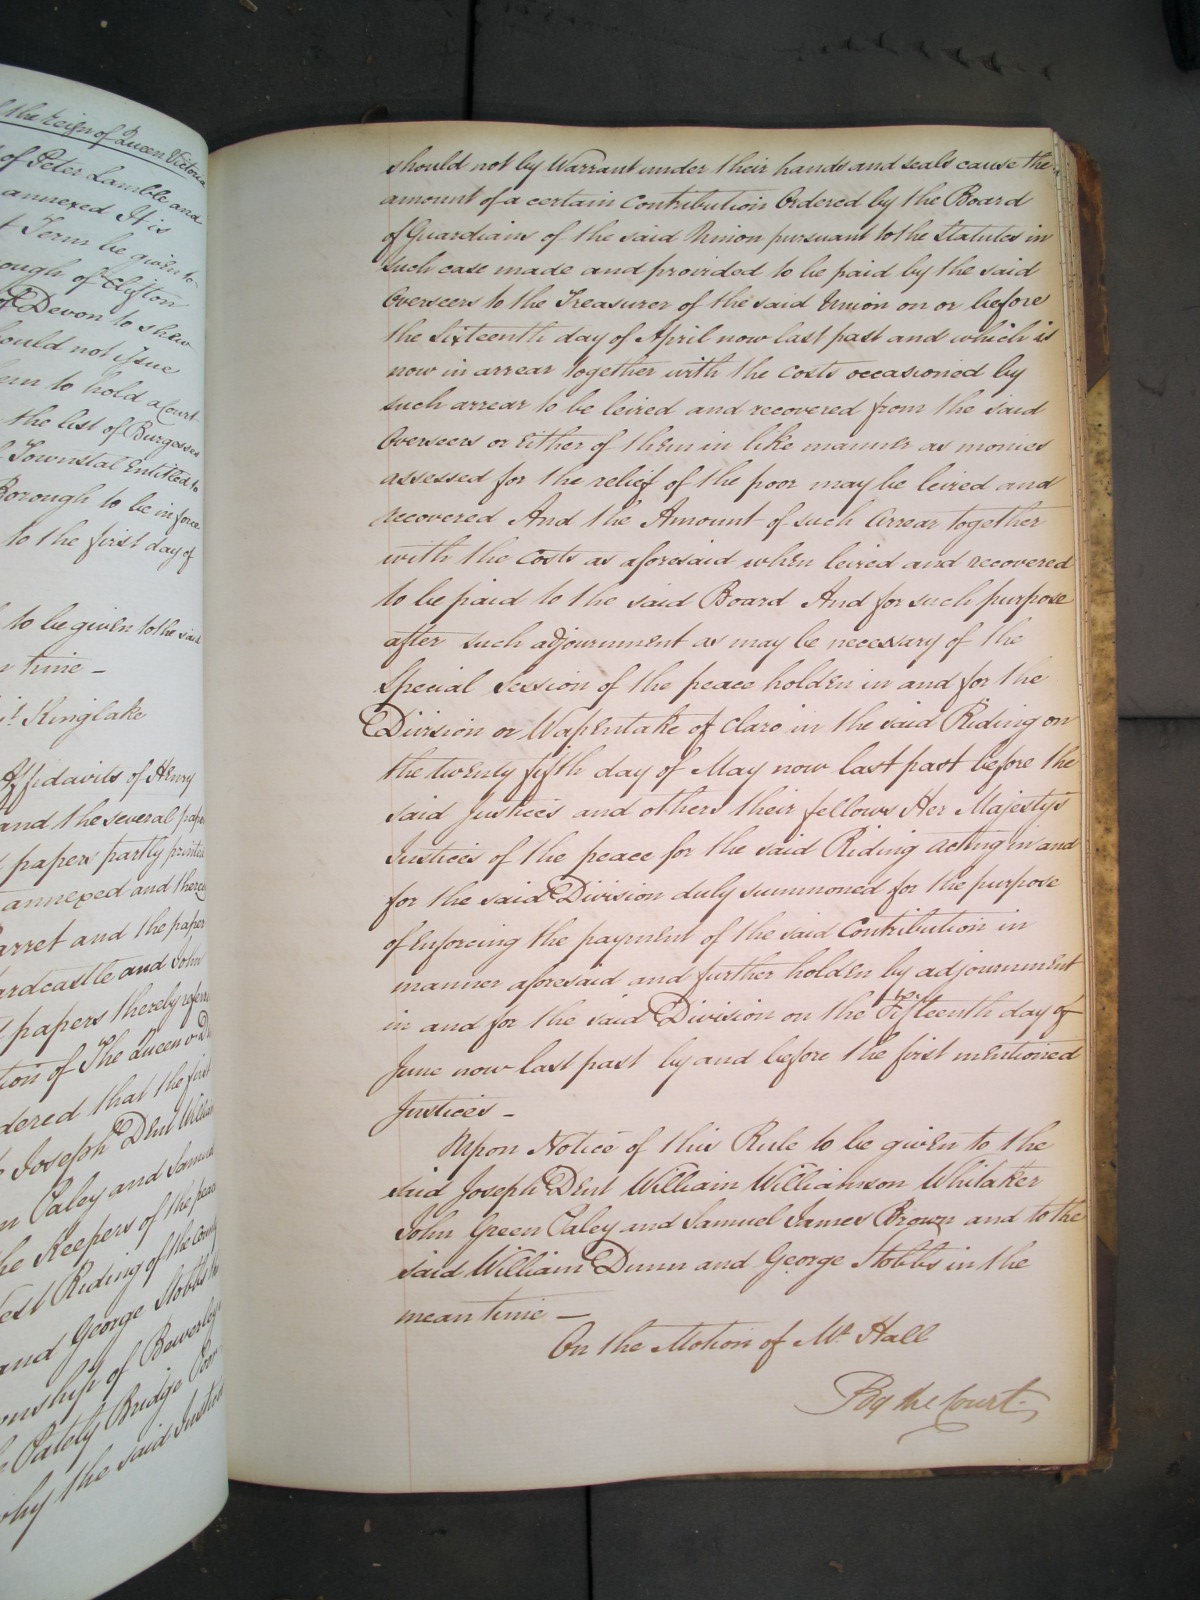 the Reign of Queen Victoria
of Peter Lamble and
annexed It is
Term be given to
ough of Clifton
of Devon to shew
ould not issue
them to hold a Court
the list of Burgesses
Townstal Entitled to
Borough to be in force
to the first day of
to be given to the said
time –
Kinglake
Affidavits of Henry
and the several paper
papers partly printed
annexed and thereby
arret and the paper
ardcastle and John
papers thereby referred
tion of The Queen v
dered that the first
Joseph Dent William
Caley and Samuel
the Keepers of the peace
est Riding of the County
and George Stobbs
nship of Bewerley
Pately Bridge Poor
why the said Justices
should not by Warrant under their hands and seals cause the
amount of a certain Contribution Ordered by the Board
of Guardians of the said Union pursuant to the Statutes in
such case made and provided to be paid by the said
Overseers to the Treasurer of the said Union on or before
the Sixteenth day of April now last past and which is
now in arrear together with the Costs occasioned by
such arrear to be levied and recovered from the said
Overseers or Either of them in like manner as monies
assessed for the relief of the poor may be levied and
recovered And the Amount of such Arrear together
with the Costs as aforesaid when levied and recovered
to be paid to the said Board And for such purpose
after such adjournment as may be necessary of the
Special Session of the peace holden in and for the
Division or Wapentake of Claro in the said Riding on
the twenty fifth day of May now last past before the
said Justices and others their fellows Her Majestys
Justices of the peace for the said Riding acting in and
for the said Division duly summoned for the purpose
of Enforcing the payment of the said Contribution in
manner aforesaid and further holden by adjournment
in and for the said Division on the Fifteenth day of
June now last past by and before the first mentioned
Justices –
Upon Notice of this Rule to be given to the
said Joseph Dent William Williamson Whitaker
John Green Caley and Samuel James Brown and to the
said William Dunn and George Stobbs in the
mean time –
On the Motion of Mr Hall
By the Court.